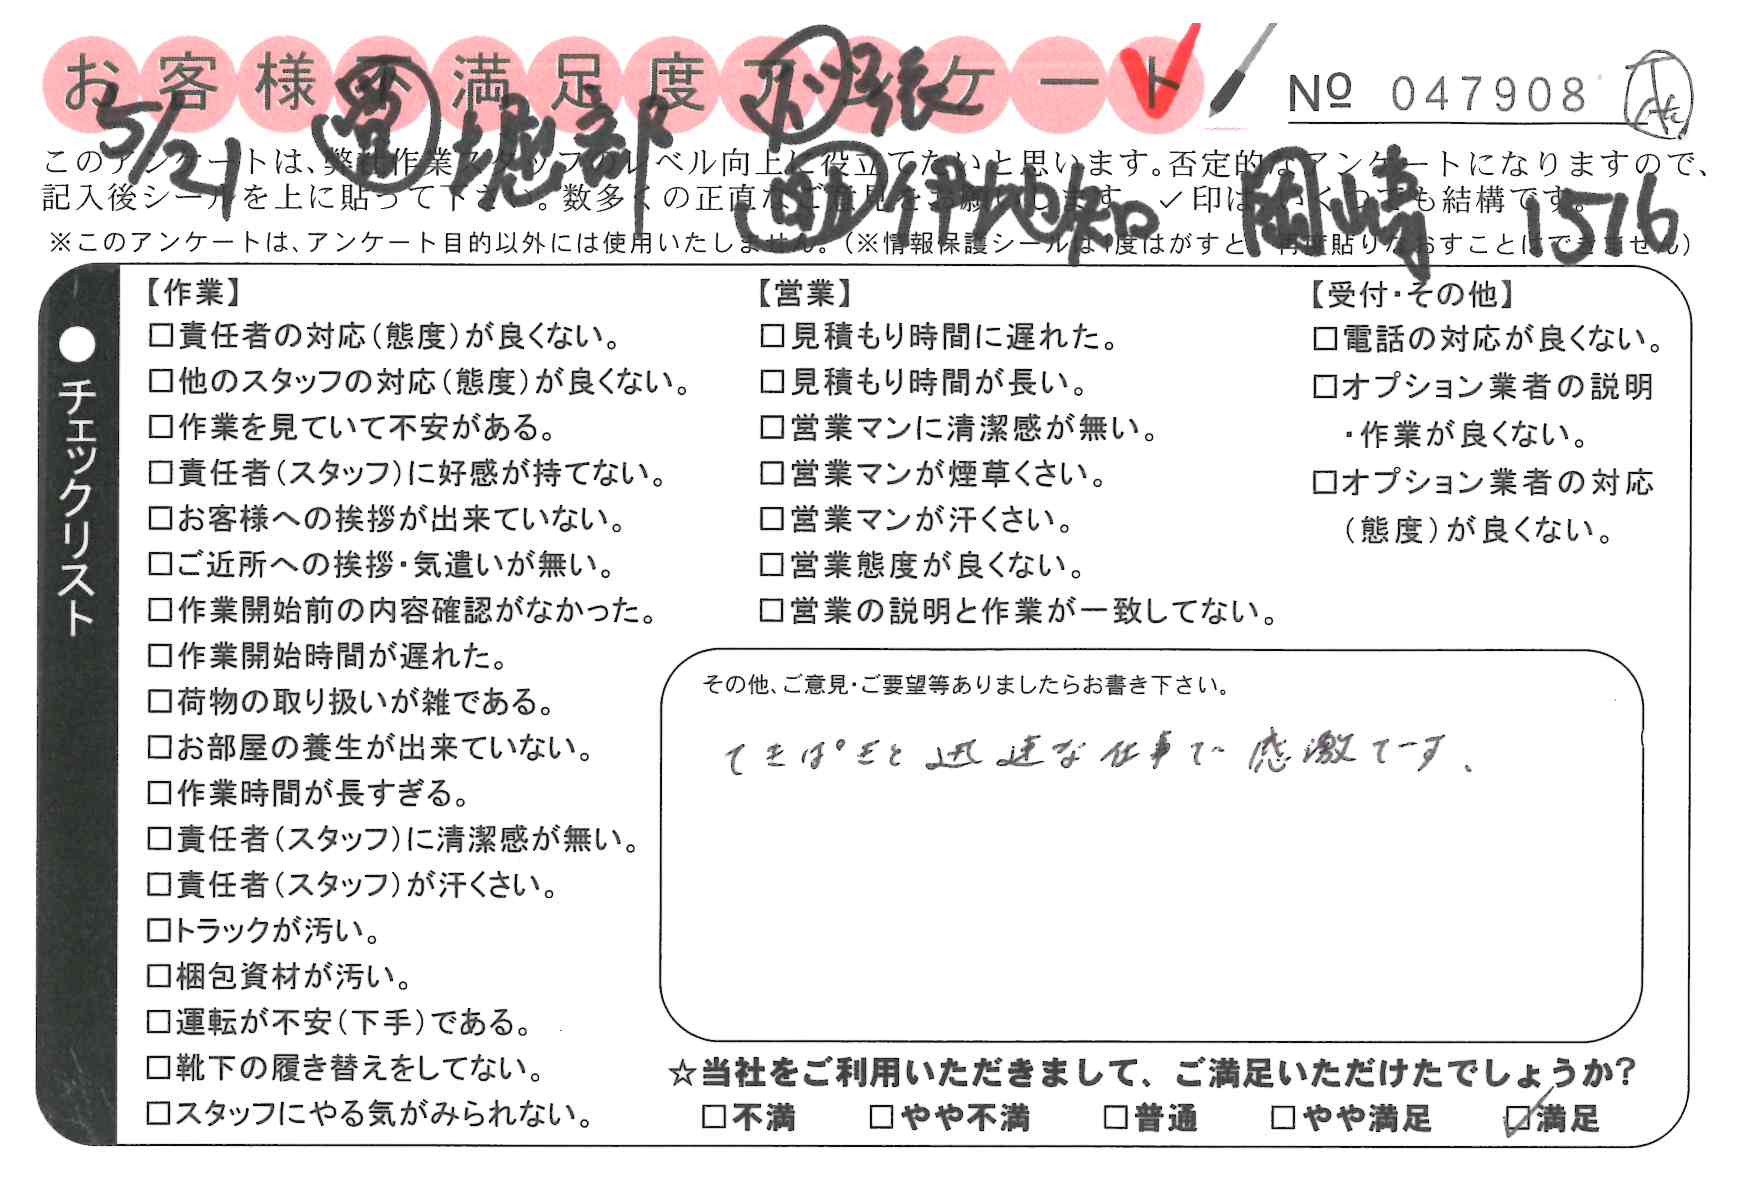 お客様不満足度アンケート
№ 047908
5/21 堀部 尺張
伊地知 岡崎 1516
このアンケートは、弊社作業スタッフのレベル向上に役立てたいと思います。否定的なアンケートになりますので、
記入後シールを上に貼って下さい。数多くの正直なご意見をお願いします。✓印はいくつでも結構です。
※このアンケートは、アンケート目的以外には使用いたしません。(※情報保護シールは1度はがすと、再度貼りなおすことはできません)
●チェックリスト
【作業】
□責任者の対応(態度)が良くない。
□他のスタッフの対応(態度)が良くない。
□作業を見ていて不安がある。
□責任者(スタッフ)に好感が持てない。
□お客様への挨拶が出来ていない。
□ご近所への挨拶・気遣いが無い。
□作業開始前の内容確認がなかった。
□作業開始時間が遅れた。
□荷物の取り扱いが雑である。
□お部屋の養生が出来ていない。
□作業時間が長すぎる。
□責任者(スタッフ)に清潔感が無い。
□責任者(スタッフ)が汗くさい。
□トラックが汚い。
□梱包資材が汚い。
□運転が不安(下手)である。
□靴下の履き替えをしてない。
□スタッフにやる気がみられない。
【営業】
□見積もり時間に遅れた。
□見積もり時間が長い。
□営業マンに清潔感が無い。
□営業マンが煙草くさい。
□営業マンが汗くさい。
□営業態度が良くない。
□営業の説明と作業が一致してない。
【受付・その他】
□電話の対応が良くない。
□オプション業者の説明
・作業が良くない。
□オプション業者の対応
(態度)が良くない。
その他、ご意見・ご要望等ありましたらお書き下さい。
てきぱきと迅速な仕事で感激です、
☆当社をご利用いただきまして、ご満足いただけたでしょうか?
□不満 □やや不満 □普通 □やや満足 ☑満足